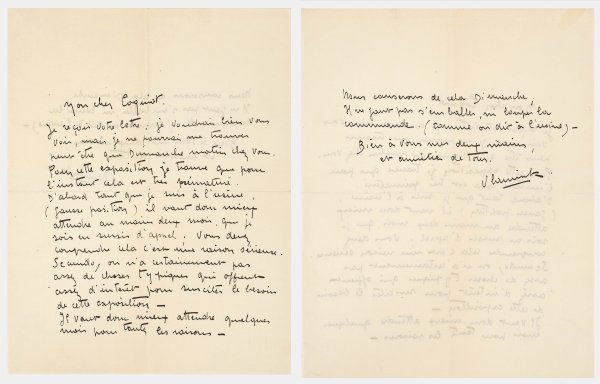 Mon cher Coquiot.
Je reçois votre lettre. je voudrais bien vous
voir, mais je ne pourrai me trouver
peut être que Dimanche matin chez vous.
Pour cette exposition je trouve que pour
l'instant cela est très prématuré.
D'abord tant que je suis à l'usine.
(fausse position) il vaut donc mieux
attendre au moins deux mois que je
sois en sursis d'appel. Vous devez
comprendre cela c'est une raison sérieuse.
Secundo, on n'a certainement pas
assez de choses typiques qui offrent
assez d'intérêt pour susciter le besoin
de cette exposition —
Il vaut donc mieux attendre quelques
mois pour toutes les raisons —
Nous causerons de cela Dimanche,
Il ne faut pas s'emballer, ni louper la
commande. (comme on dit à l'usine) —
Bien à vous mes deux mains,
et amitiés de tous.
Vlaminck